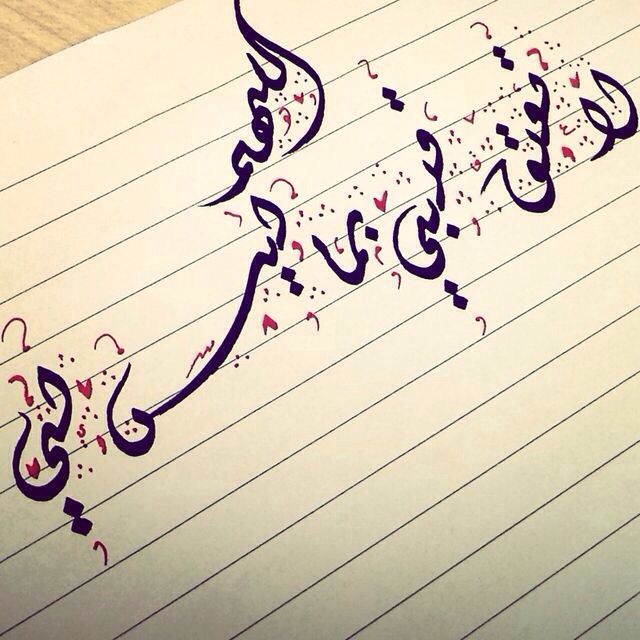 اللهم
لا تعلق قلبي بما ليس لي